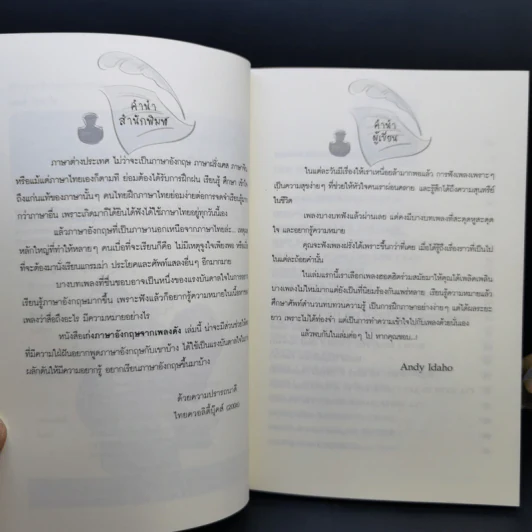 คำนำ
สำนักพิมพ์
ภาษาต่างประเทศ ไม่ว่าจะเป็นภาษาอังกฤษ ภาษาฝรั่งเศส
หรือแม้แต่ภาษาไทยเองก็ตามที ย่อมต้องได้รับการฝึกฝน เรียนรู้ ศึกษา
ถึงแก่นแท้ของภาษานั้นๆ คนไทยฝึกภาษาไทยย่อมง่ายต่อการจดจำเรียนรู้
กว่าภาษาอื่น เพราะเกิดมาก็ได้ยินได้ฟังได้ใช้ภาษาไทยอยู่ทุกวันนี้เอง
แล้วภาษาอังกฤษที่เป็นภาษานอกเหนือจากภาษาไทยล่ะ..
หลักใหญ่ที่ทำให้หลายๆ คนเบื่อที่จะเรียนก็คือ ไม่มีเหตุจูงใจเพียงพอ
ที่จะต้องมานั่งเรียนแกรมม่า ประโยคและศัพท์แสลงอื่นๆ อีกมากมาย
บางบทเพลงที่ชื่นชอบอาจเป็นหนึ่งของแรงบันดาลใจในการอยาก
เรียนรู้ภาษาอังกฤษมากขึ้น เพราะฟังแล้วก็อยากรู้ความหมายในเนื้อ
เพลงว่าสื่อถึงอะไร มีความหมายอย่างไร
หนังสือเก่งภาษาอังกฤษจากเพลงดัง เล่มนี้ น่าจะมีส่วนช่วยให้
ที่มีความใฝ่ฝันอยากพูดภาษาอังกฤษกับเขาบ้าง ได้ใช้เป็นแรงบันดาลใจในการ
ผลักดันให้มีความอยากรู้ อยากเรียนภาษาอังกฤษขึ้นมาบ้าง
ด้วยความปรารถนาดี
ไทยควอลิตี้บุ๊คส์ (2006)
คำนำ
ผู้เขียน
ในแต่ละวันมีเรื่องให้เราเหนื่อยล้ามากพอแล้ว การฟังเพลงเพราะๆ
เป็นความสุขง่ายๆ ที่ช่วยให้หัวใจคนเราผ่อนคลาย และรู้สึกได้ถึงความสุนทรีย์
ในชีวิต
เพลงบางบทฟังแล้วผ่านเลย แต่คงมีบางบทเพลงที่สะดุดหูสะดุด
ใจ และอยากรู้ความหมาย
คุณจะฟังเพลงฝรั่งได้เพราะขึ้นกว่าที่เคย เมื่อได้รู้ถึงเรื่องราวที่เป็นไป
ในแต่ละถ้อยคำนั้น
ในเล่มแรกนี้เราเลือกเพลงฮอตฮิตร่วมสมัยมาให้คุณได้เพลิดเพลิน
บางเพลงไม่ใหม่มากแต่ยังเป็นที่นิยมร้องกันแพร่หลาย เรียนรู้ความหมายแล้ว
ศึกษาศัพท์สำนวนทบทวนความรู้ เป็นการฝึกภาษาอย่างง่ายๆ แต่ได้ผลระยะ
ยาว เพราะไม่ได้ท่องจำ แต่เป็นการทำความเข้าใจไปกับเพลงด้วยนั่นเอง
แล้วพบกันในเล่มต่อๆ ไป หากคุณชอบ...!
Andy Idaho